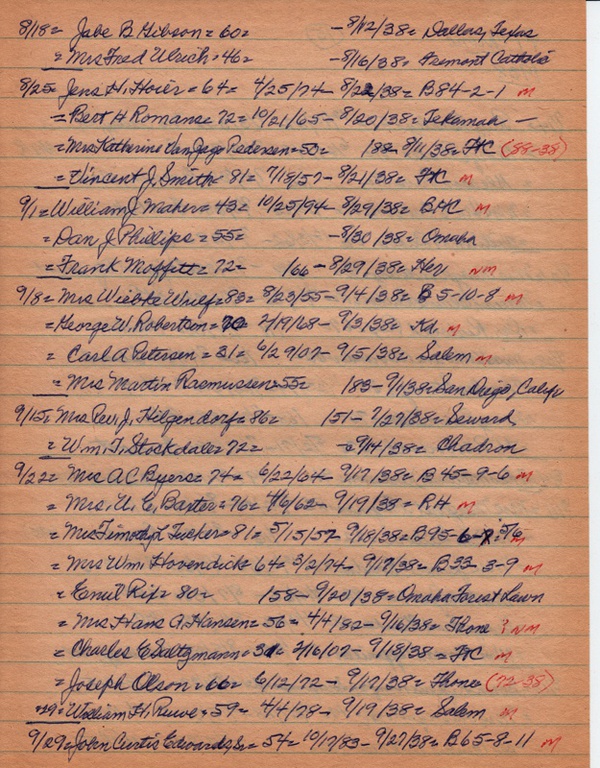 8/18= Jabe B Gibson = 60= -8/12/38= Dallas, Texas
= Mrs Fred Ulrich = 46= -8/16/38= Fremont Catholic
8/25= Jens H. Hoier = 64= 4/25/74- 8/22/38= B84-2-1 M
= Bert H Romans= 72= 10/21/65- 8/20/38= Tekamah -
= Mrs Katherine Van Jago Pedersen= 50= 188- 8/11/38= FC (88-38)
= Vincent J. Smith= 81= 7/18/57- 8/21/38= FC M
9/1= William J Maher= 43= 10/25/94- 8/29/38= BHC M
= Dan J Phillips = 55= -8/30/38= Omaha
= Frank Moffitt = 72= /66- 8/29/38= Her NM
9/8= Mrs Wiebke Wulf= 83= 8/23/55- 9/4/38= B 5-10-8 M
= George W. Robertson= 70 2/19/68- 9/3/38= Ka. M
= Carl A Petersen = 31= 6/29/07- 9/5/38= Salem M
= Mrs Martin Rasmussen= 55= 183- 9/1/38= San Diego, Calif
9/15= Mrs Rev. J. Hilgendorf= 86= 151- 7/27/38= Seward
= Wm. T. Stockdale= 72= -9/14/38= Chadron
9/22= Mrs A C Byers= 74= 6/22/64- 9/17/38= B 45-9-6 M
= Mrs. U. E. Baxter= 76= 4/6/62- 9/19/38= RH M
= Mrs Timothy L Tucker= 81= 5/15/57- 9/18/38= B95- 6- M
= Mrs Wm. Hovendick= 64= 3/2/74- 9/17/38= B 33- 3-9 M
= Emil Rix= 80= 158- 9/20/38= Omaha Forest Lawn
= Mrs Hans A. Hansen= 56= 4/4/82- 9/16/38= Thone ? NM
= Charles E Saltzmann= 31= 2/16/07- 9/18/38= FC M
= Joseph Olson= 66= 6/12/72- 9/17/38= Thone (72-38)
= William H. Ruwe= 59= 4/4/78- 9/19/38= Salem M
9/29= John Curtis Edwards, Sr= 54= 10/17/83- 9/27/38= B65-8-11 M